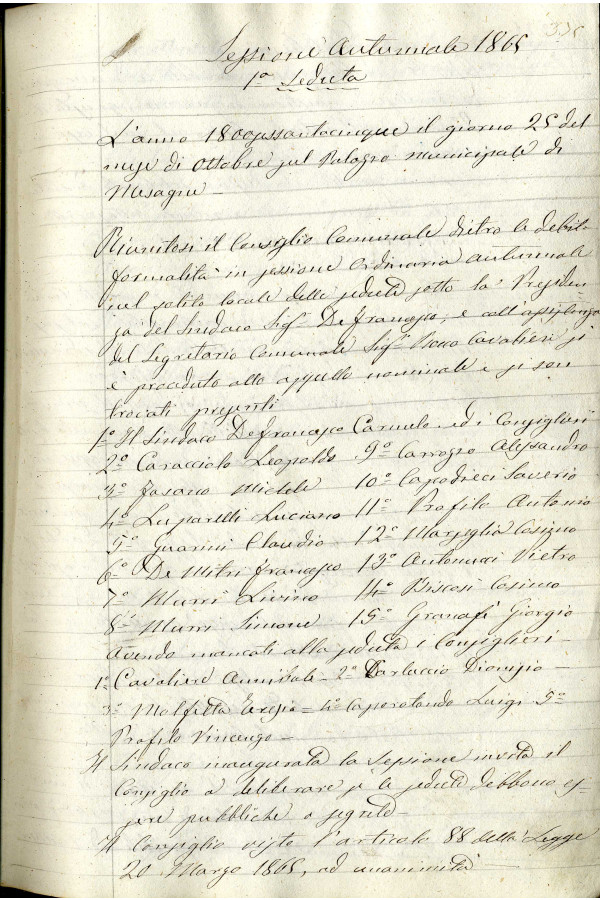 335
Sessione Autunnale 1865
1ª Seduta
L'anno 1800sessantacinque il giorno 25 del
mese di Ottobre sul Palagio Municipale di
Mesagne
Riunitosi il Consiglio Comunale dietro le debite
formalità in sessione Ordinaria autunnale
nel solito locale delle sedute sotto la Presiden
za del Sindaco Sigr Defrancesco, e coll'assistenza
del Segretario Comunale Sigr Cavaliere si
è proceduto allo appello nominale e si son
trovati presenti
1º Il Sindaco Defrancesco Carmelo ed i Consiglieri
2º Caracciolo Leopoldo 9º Carrogno Alessandro
3º Fasano Michele 10º Capodieci Saverio
4º Luparelli Luciano 11º Profilo Antonio
5º Guarini Claudio 12º Marsiglia Cosimo
6º De Mitri Francesco 13º Antonucci Pietro
7º Murri Livino 14º Biscosi Cosimo
8º Murri Simone 15º Granafi Giorgio
Avendo mancati alla seduta i Consiglieri
1º Cavaliere Annibale - 2º Carluccio Dionisio -
3º Molfetta = 4º Caporotondo Luigi 5º
Profilo Vincenzo -
Il Sindaco inaugurata la Sessione invita il
Consiglio a deliberare se le sedute debbono es-
sere pubbliche o segrete -
Il Consiglio visto l'articolo 88 della Legge
20 Marzo 1865, ad unanimità